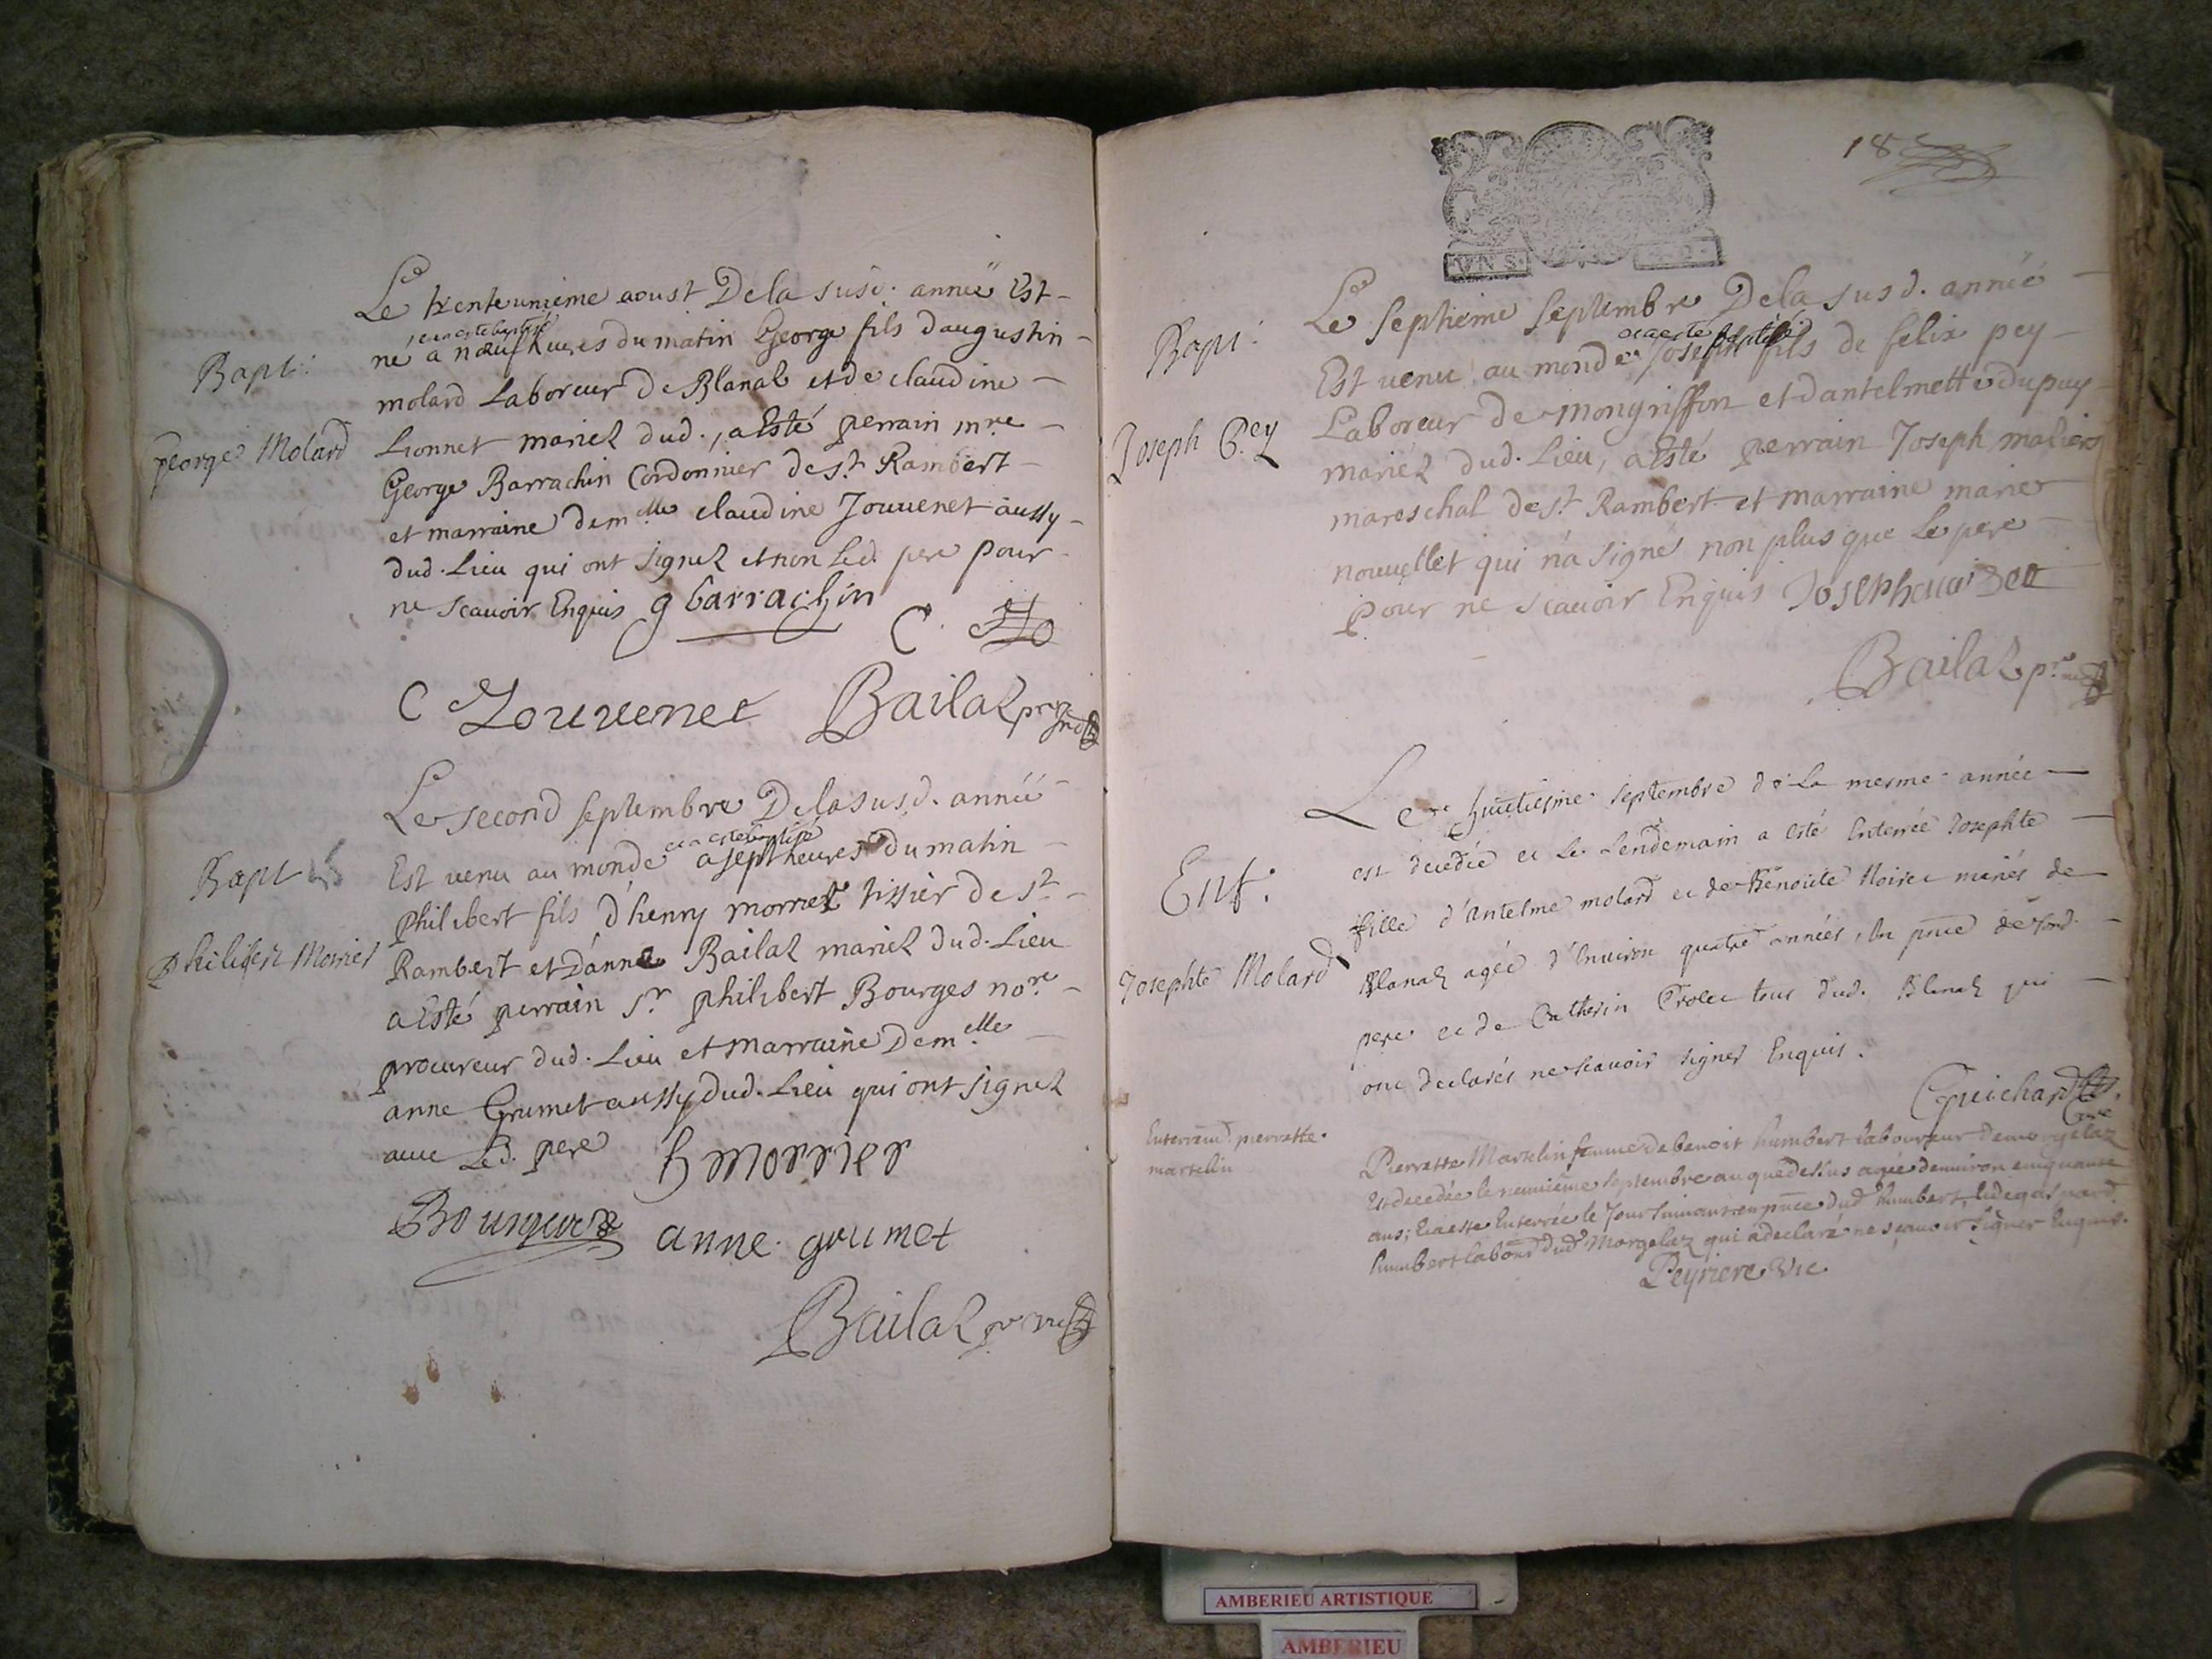 Bapt:
George Molard
Le trente unieme aoust De la susd. année Est
et a esté baptisé
né a neuf heures du matin George fils daugustin
molard Laboreur de Blanaz et de claudine
Lionnet mariez dud., a Esté perrain mre
George Barrachin Cordonnier de st Rambert
et marraine demelle claudine Jouuenet aussy
dud. Lieu qui ont signez et non Led. pere pour
ne scauoir Enquis g barrachin
C
C Jouuenet Bailaz
Bapt
Philibert Morrier
Le second septembre De la susd. année
et a esté baptisé
Est uenu au monde a sept heures du matin
philibert fils d'henry morrier tissier de st
Rambert et D'anne Bailaz mariez dud. Lieu
a Esté perrain sr philibert Bourges nore
procureur dud. Lieu et marraine Demelle
anne Grumet aussy dud. Lieu qui ont signez
auec Led. pere h morrier
anne grumet
Bailaz
18
VN S.
Bapt:
Joseph Pey
Le septieme septembre De la susd. année
et a esté baptisé
Est uenu au monde Joseph fils de felix pey
Laboreur de mongriffon et d'antelmette dupuy
mariez dud. Lieu, a Esté perrain Joseph
mareschal de st Rambert et marraine marie
nouuellet qui n'a signé non plus que Le pere
pour ne scauoir Enquis Joseph
Bailaz
Ent:
Josephte Molard
Le huictiesme septembre de la mesme année
est decedée et le lendemain a esté Enterrée Josephte
fille d'Antelme molard et de Benoite mariés de
Blanaz agée d'Enuiron quatre années, En pnce de sond.
pere et de Catherin tous dud. Blanaz qui
ont declarés ne scauoir signer Enquis.
Guichard
Curé
Enterremt. pierrette
martelin
Pierrette Martelin femme de benoit humbert laboureur de morgelaz
Est decedée le neuuiéme septembre an que dessus agée denuiron cinquante
ans; Et a esté Enterrée le Jour suiuant en pnce dud. humbert, et de gaspard
humbert labour dud. Morgelaz qui a declaré ne sçauoir signer Enquis.
Peyriere vic
AMBERIEU ARTISTIQUE
AMBERIEU